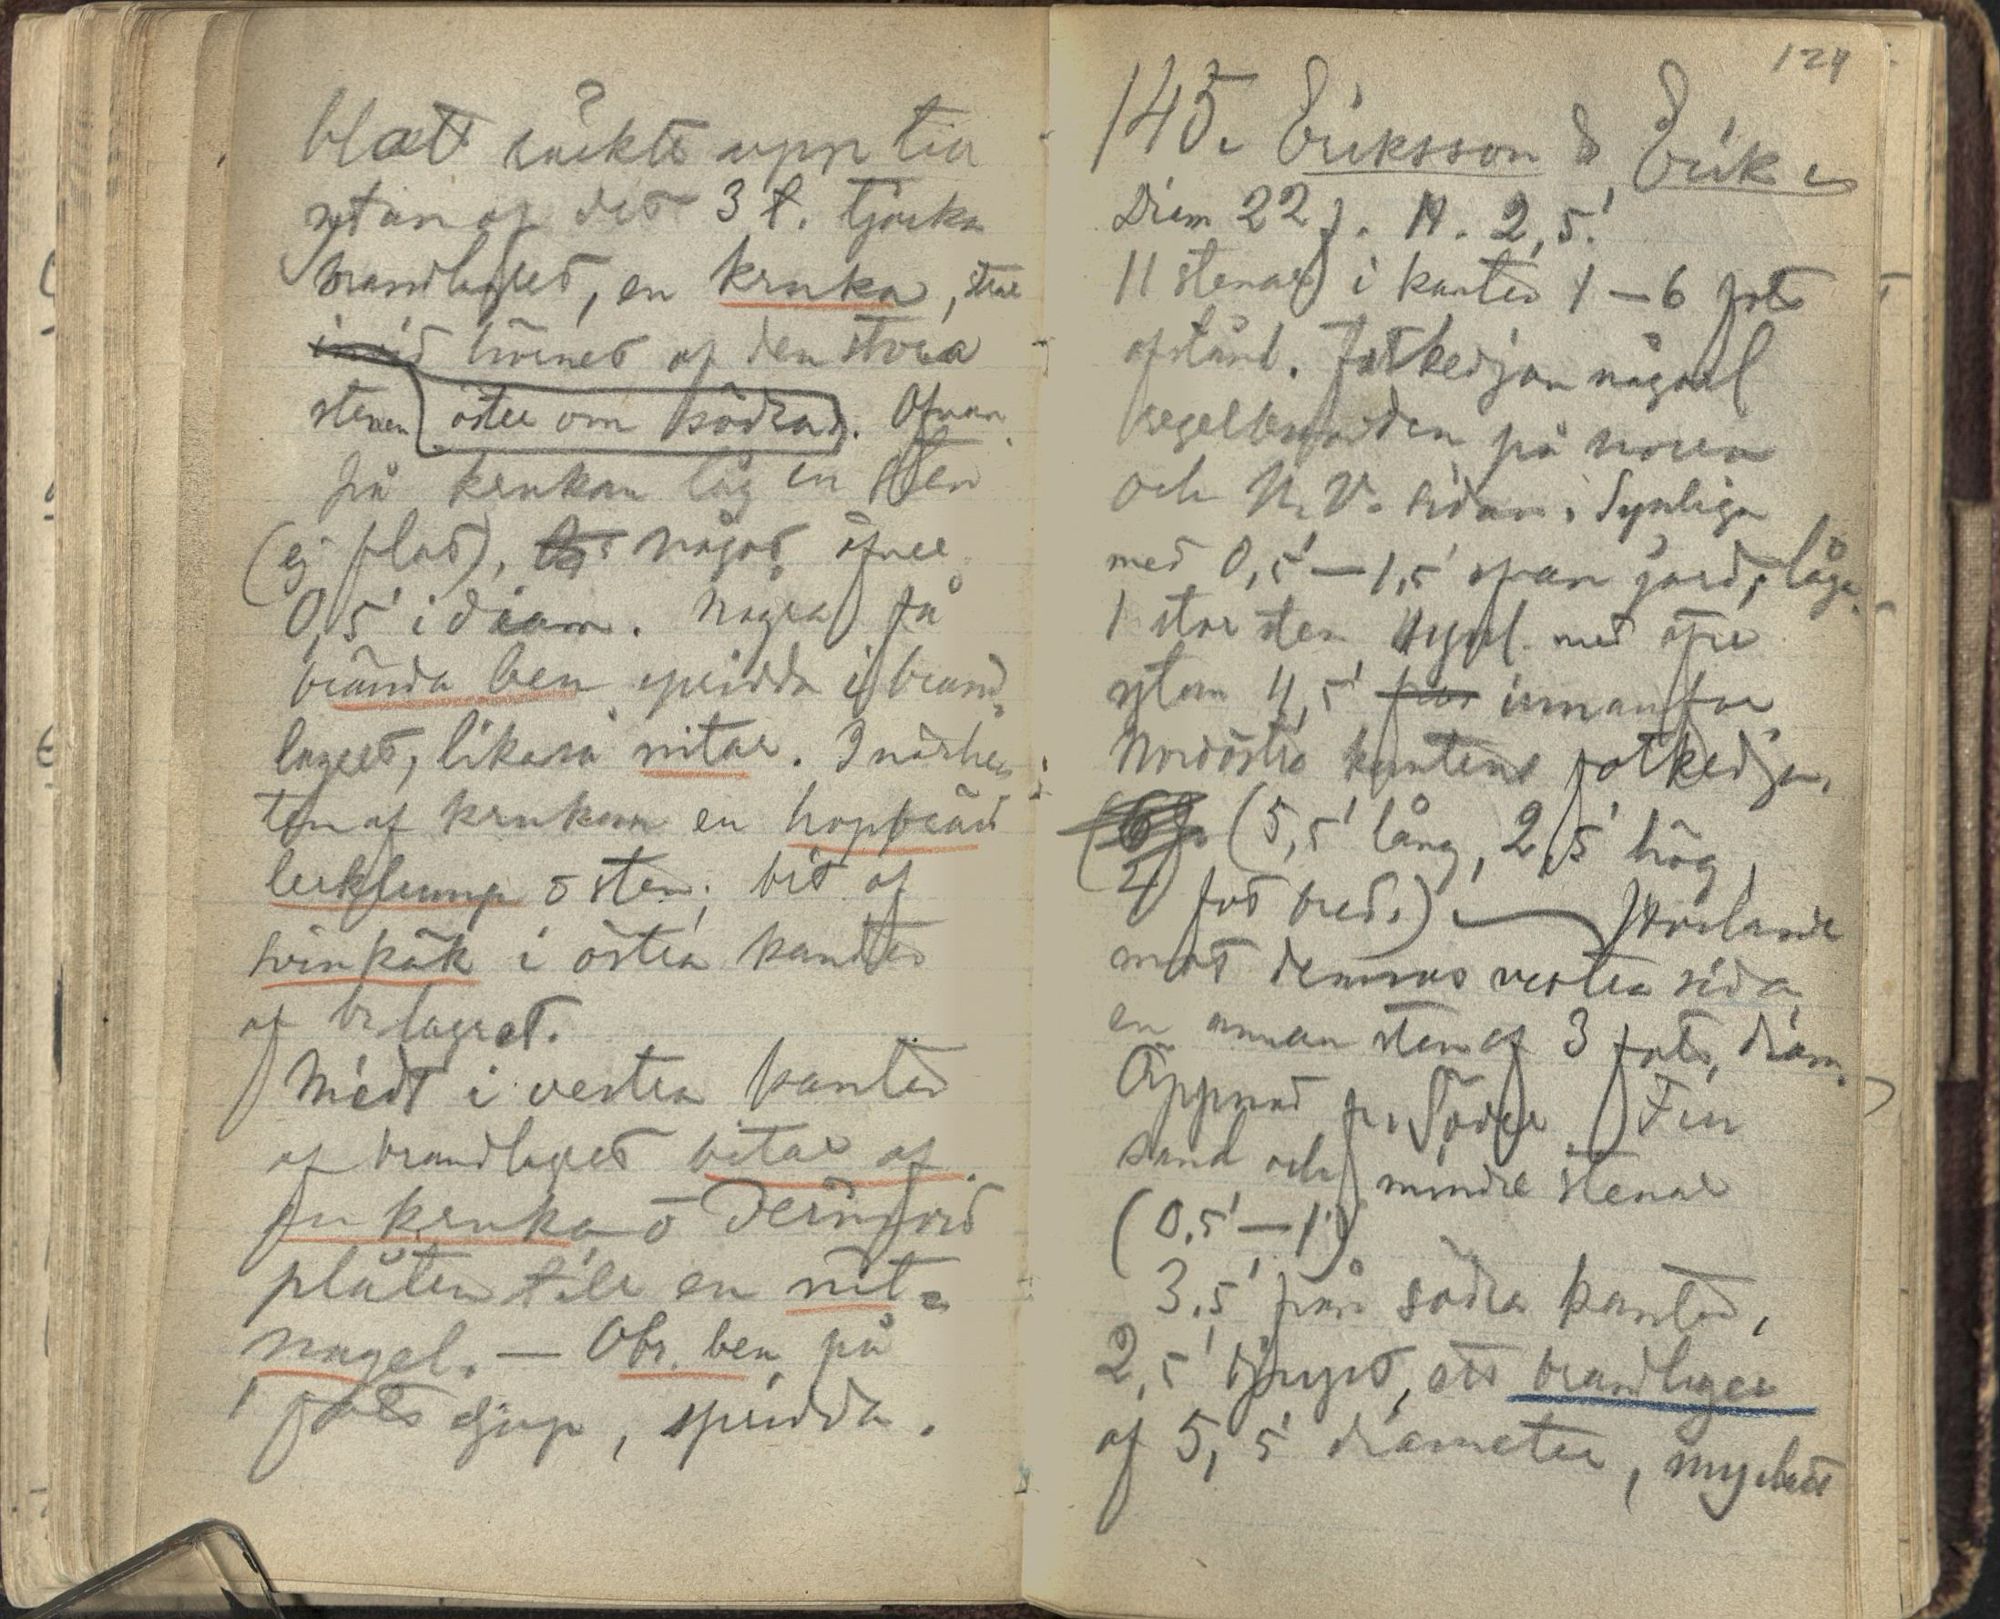 blott räckte upp till
ytan af det 3 t. tjocka
brandlagret, en kruka, strax
invid hörnet af den stora
stenen öster om södra. Ofvan
på krukan låg en sten
(ej flat), något öfver
0,5' i diam. Några få
brända ben spridda i brand-
lagret, likaså nitar. I närhe-
ten af krukan en hopbränd
lerklump o sten; bit af
svinkäk i östra kanten
af br lagret.
Midt i vestra kanten
af brandlagret bitar af
en kruka o
plåten till en nit-
nagel. — Obr. ben på
1 fots djup, spridda.
124
145. Eriksson & Erik
Diam 22 f. H. 2,5'.
11 stenar i kanten 1 — 6 fots
afstånd. Fotkedjan något
regelbunden på norra
och N.V. sidan. Synliga
med 0,5' — 1,5' ofvan jord, låga.
1 stor sten med öfre
ytan 4,5' från innanför
Nordöstra kantens fotkedja,
(5,5' lång, 2,5' hög,
4 fot bred.) — Hvilande
mot dennas vestra sida
en annan sten af 3 fots diam.
Öppnad fr. Söder. Fin
sand och mindre stenar
(0,5' — 1')
3,5' från södra kanten,
2,5' djupt, ett brandlager
af 5,5' diameter, mycket